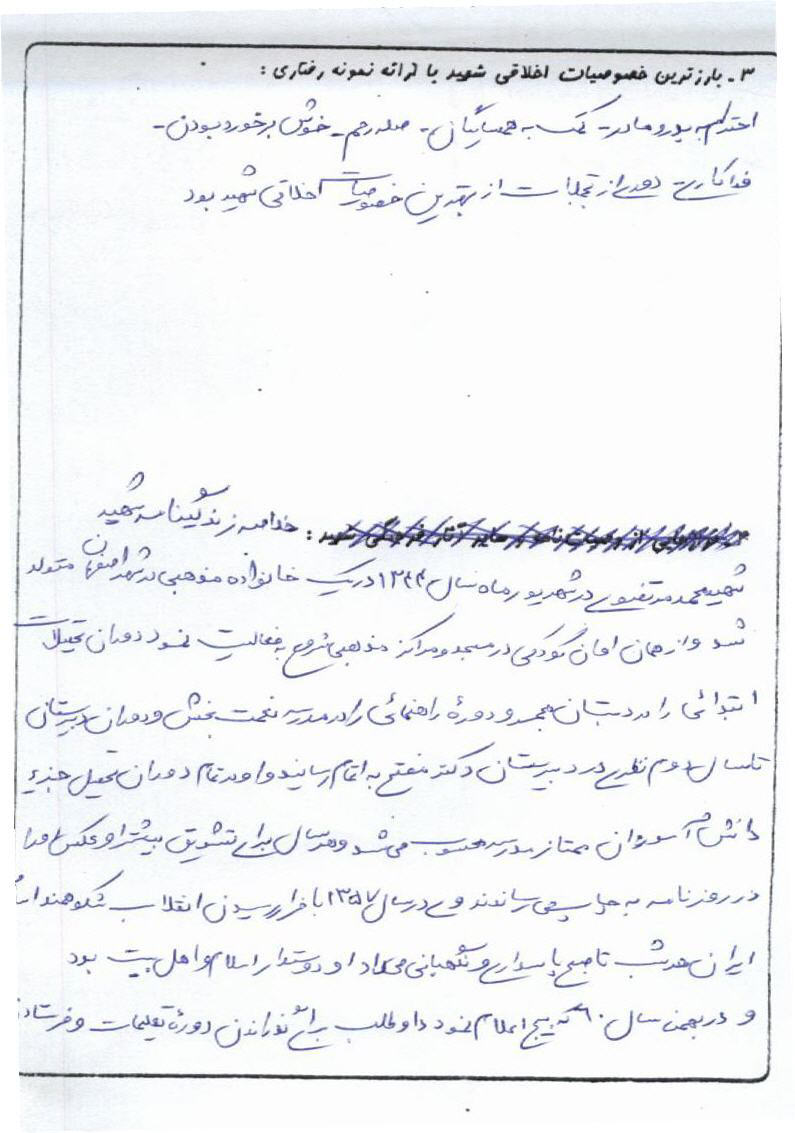 ۳ - بارزترین خصوصیات اخلاقی شهید با ارائه نمونه رفتاری :
احترام به پدر و مادر - کمک به همسایگان - صله رحم - خوش برخورد بودن -
فداکاری دوری از تجملات از بهترین خصوصیات اخلاقی شهید بود
: خلاصه زندگینامه شهید
شهید محمد مرتضوی در شهریور ماه سال ۱۳۴۴ در یک خانواده مذهبی در شهر اصفهان متولد
شد و از همان اوان کودکی در مسجد و مراکز مذهبی شروع به فعالیت نمود دوران تحصیلات
ابتدائی را در دبستان و دورهٔ راهنمائی را در مدرسه نعمت بخش و دوران دبیرستان
تا سال دوم نظری در دبیرستان دکتر مفتح به اتمام رسانید و او در تمام دوران تحصیل جزء
دانش آموزان ممتاز مدرسه محسوب می شد و هر سال برای تشویق بیشتر او عکس او را
در روزنامه به چاپ می رساندند وی در سال ۱۳۵۷ با فرا رسیدن انقلاب شکوهمند
ایران هر شب تا صبح پاسداری و نگهبانی می داد او دوستدار اسلام و اهل بیت بود
و در بهمن سال ۶۰ که بسیج اعلام نمود داوطلب برای گذراندن دوره تعلیمات و